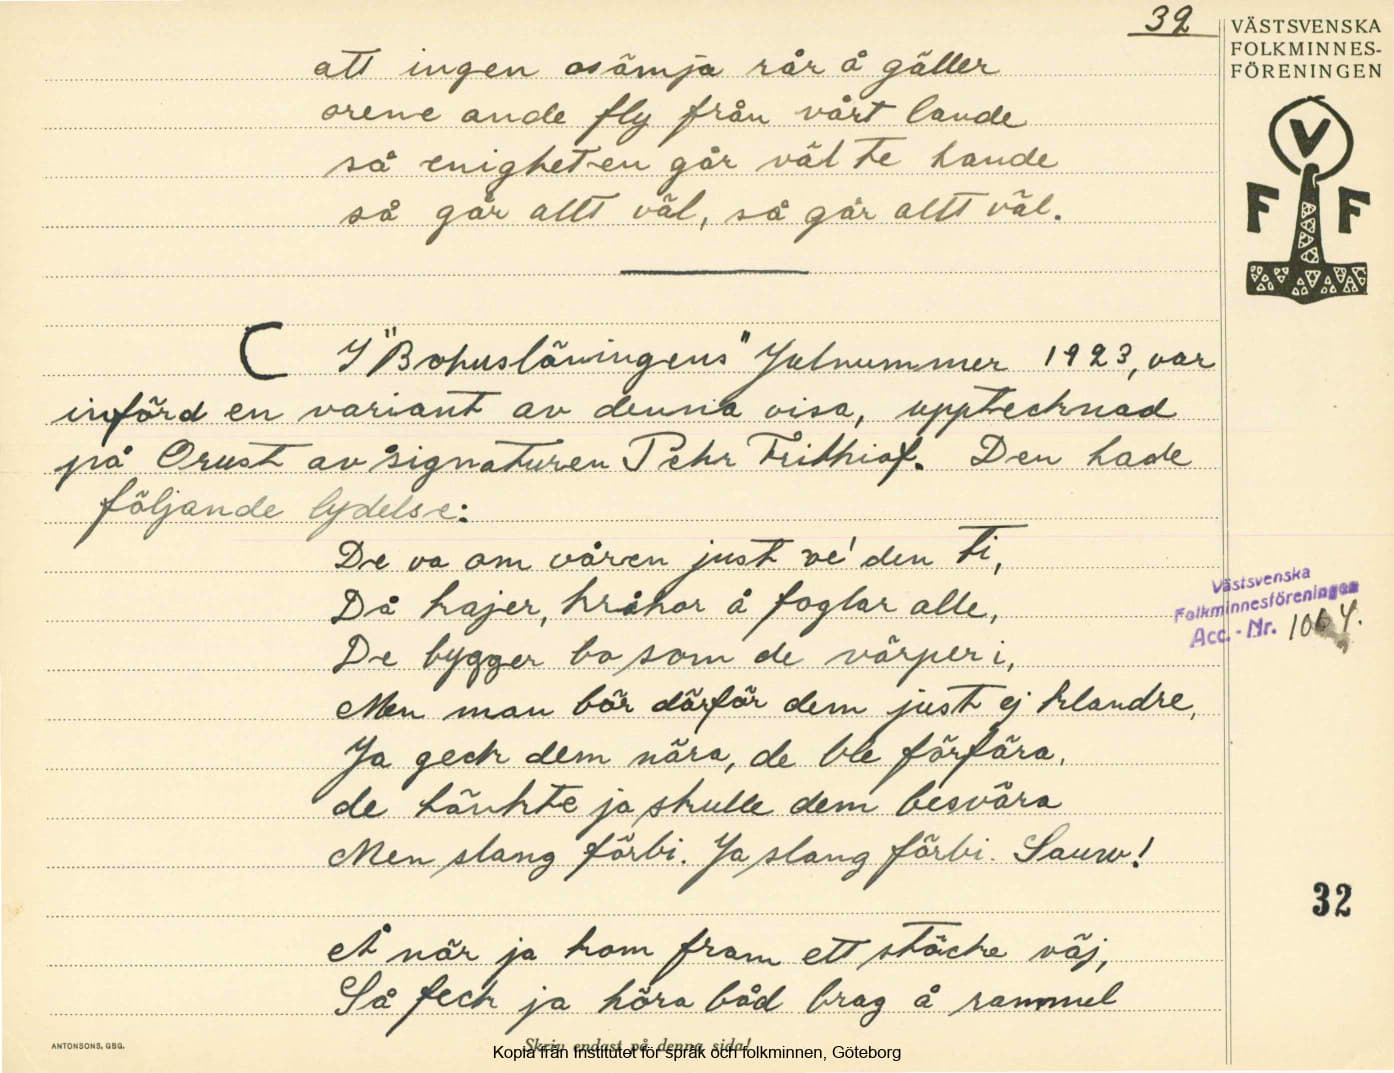 32
VÄSTSVENSKA
FOLKMINNES-
FÖRENINGEN
V
F F
att ingen osämja rår å gäller
orene ande fly från vårt lande
så enigheten går väl te hande
så går allt väl, så går allt väl.
C I "Bohusläningens" Julnummer 1923, var
införd en variant av denna visa, upptecknad
på Orust av signaturen Pehr Frithiof. Den hade
följande lydelse:
De va om våren just ve' den ti,
Då kajer, kråkor å foglar alle,
De bygger bo som de värper i,
Men man bör därför dem just ej klandre,
Ja geck dem nära, de ble förfära,
de tänkte ja skulle dem besvära
Men slang förbi. Ja slang förbi.
Västsvenska
Folkminnesföreningen
Acc. - Nr.
32
Å när ja kom fram ett stäcke väj,
Så feck ja höra båd brag å rammel
ANTONSONS, GBG.
Skriv endast på denna sida!
Kopia från Institutet för språk och folkminnen, Göteborg